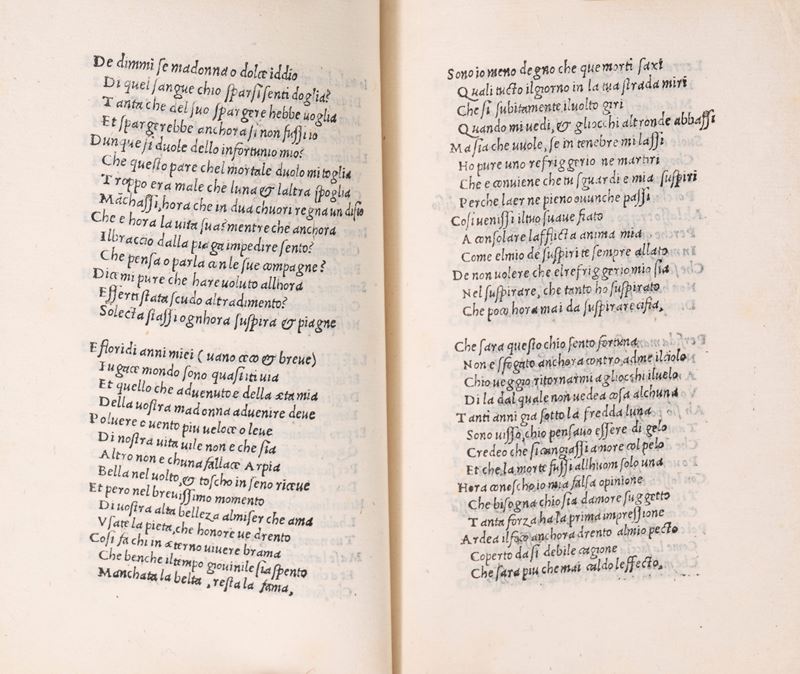 De dimmi se madonna o dolce iddio
Di quel sangue chio sparsi senti doglia?
Tanta che del suo spargere hebbe uoglia
Et spargerebbe anchora si non fussi io
Dunque si duole dello infortunio mio?
Che questo pare chel mortale duolo mi toglia
Troppo era male che luna & laltra spoglia
Mãchassi, hora che in dua chuori regna un disio
Che e hora la uita sua? mentre che anchora
Il braccio dalla piaga impedire sento?
Che pensa o parla con le sue compagne?
Dicami pure che hare uoluto allhora
Esserti stata scudo al tradimento?
Solecta stassi ognhora suspira & piagne
E floridi anni miei (uano cæco & breue)
Fugace mondo sono quasi iti uia
Et quello che aduenuto e della æta mia
Della uostra madonna aduenire deue
Poluere o uento piu ueloce o leue
Di nostra uita uile non e che sia
Altro non e chuna fallace Arpia
Bella nel uolto, & toscho in seno riceue
Et pero nel breuissimo momento
Di uostra alta belleza almiser che ama
Vsate la pieta, che honore ue drento
Cosi fa chi in æterno uiuere brama
Che benche il tempo giouinile sia spento
Manchata la belta, resta la fama,
Sono io meno degno che que morti saxi
Quali tucto il giorno in la tua strada miri
Che si subitamente il uolto giri
Quando mi uedi, & gliocchi altronde abbassi
Ma sia che uuole, se in tenebre mi lassi
Ho pure uno refriggerio ne martiri
Che e conuiene che tu sguardi e mia suspiri
Perche laer ne pieno ouunche passi
Cosi uenissi il tuo suaue fiato
A consolare lafflicta anima mia
Come el mio de suspiri te sempre allato
De non uolere che el refriggerio mio sia
Nel suspirare, che tanto ho suspirato
Che poco hora mai da suspirare cista,
Che sara questo chio sento fortuna
Non e sfogato anchora contro adme il ciolo
Chio ueggio ritornarmi a gliocchi iluelo
Di la dal quale non uedea cosa alchuna
Tanti anni gia sotto la fredda luna
Sono uisso, chio pensauo essere di gelo
Credeo che si cangiassi amore col pelo
Et che la morte fussi allhuom solo una
Hora conoscho io mia falsa opinione
Che bisogna chio sia damore suggetto
Tanta forza ha la prima impressione
Ardea il foco anchora drento al mio pecto
Coperto da si debile cagione
Che sara piu che mai caldo leffecto,